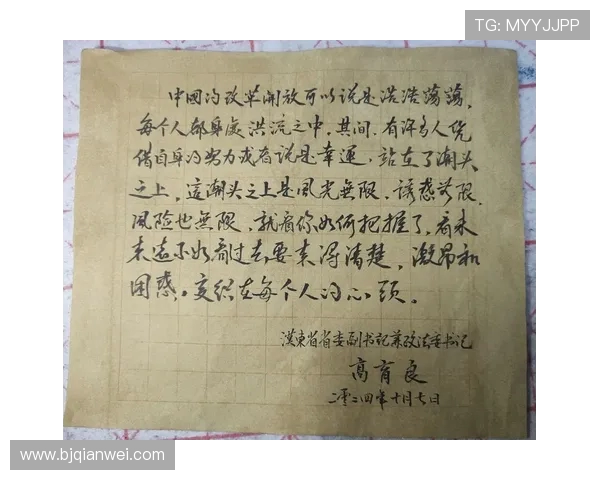 TG: MYYJJPP
中國的改革開放可以说是浩浩荡荡,
每个人都身處洪流之中。其间,有许多人凭
借自身的努力或者说是幸運,站在了潮头
之上,這潮头之上是風光無限,诱惑无限,
風险也無限,就看你如何把握了,看未
来遠不如看过去要来得清楚,激昂和
困惑,交织在每个人的心頭。
漢東省省委副书记兼政法委书记
高育良
二零二四年十月七日
www.bjqianwei.com